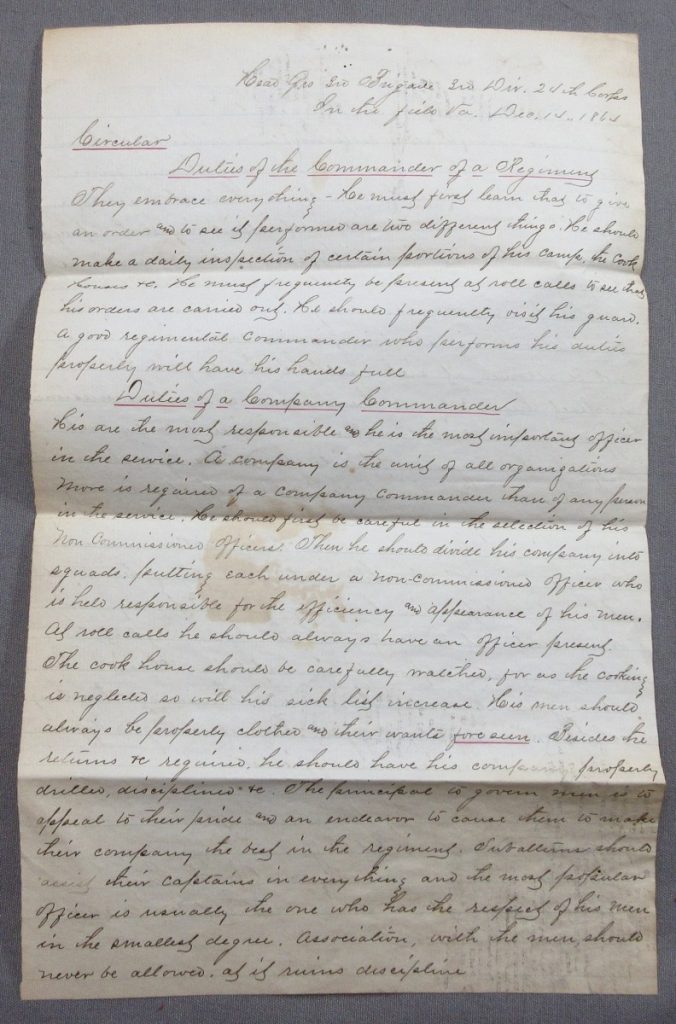 Head Qrs 3rd Brigade 3rd Div. 24th Corps
In the field Va. Dec. 14., 1864
Circular
Duties of the Commander of a Regiment
They embrace everything - He must first learn that to give
an order and to see it performed are two different things. He should
make a daily inspection of certain portions of his camp, the Cook
houses &c. He must frequently be present at roll calls to see that
his orders are carried out. He should frequently visit his guard.
A good regimental commander who performs his duties
properly will have his hands full
Duties of a Company Commander
His are the most responsible and he is the most important officer
in the service. A company is the unit of all organizations
More is required of a company commander than of any person
in the service. He should first be careful in the selection of his
Non Commissioned Officers. Then he should divide his company into
squads. putting each under a non-commissioned officer who
is held responsible for the efficiency and appearance of his men.
At roll calls he should always have an officer present.
The cook house should be carefully watched, for as the cooking
is neglected so will his sick list increase. His men should
always be properly clothed and their wants fore seen. Besides the
returns &c required, he should have his company properly
drilled, disciplined &c. The principal to govern men is to
appeal to their pride and an endeavor to cause them to make
their company the best in the regiment. Subalterns should
assist their captains in everything and the most popular
officer is usually the one who has the respect of his men
in the smallest degree. Association, with the men should
never be allowed. as it ruins discipline